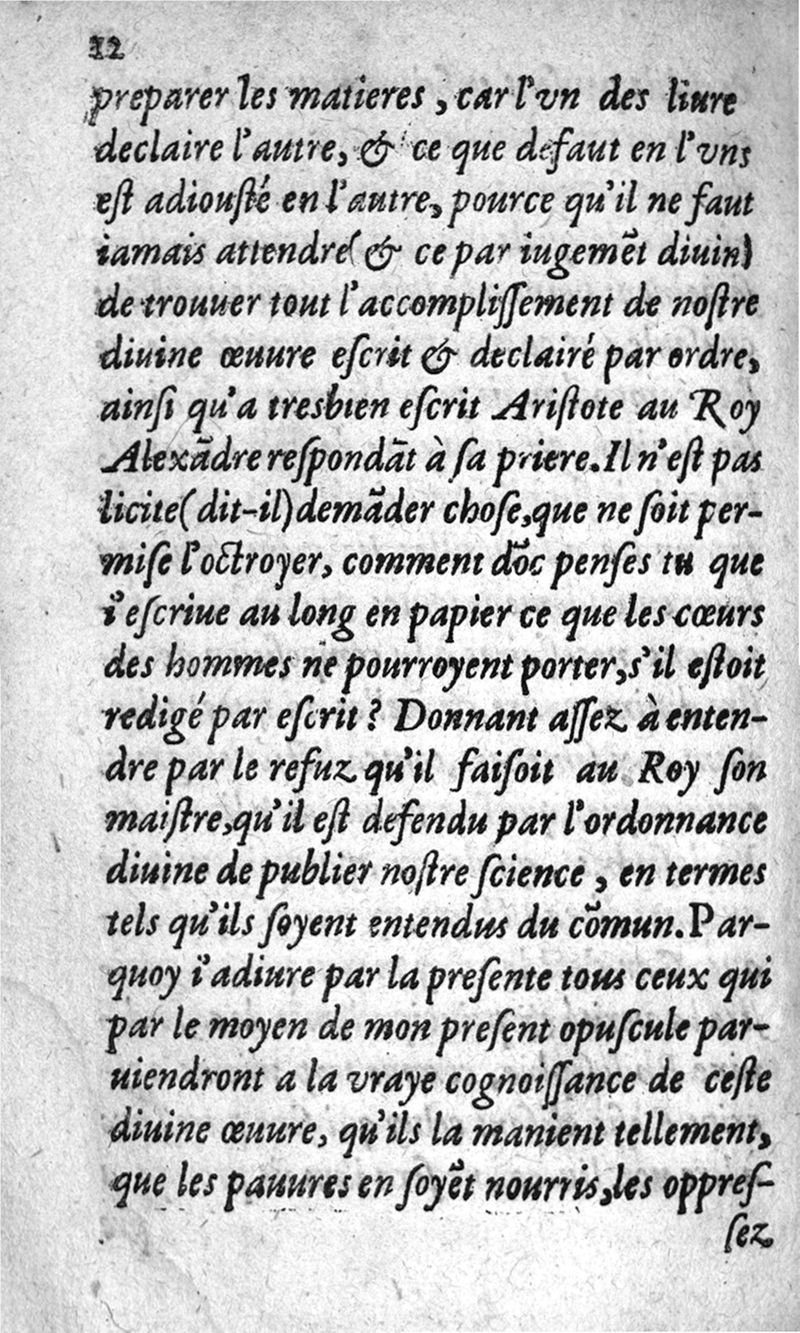 12
preparer les matieres , car l'vn des liure
declaire l'autre, & ce que defaut en l'vns
eſt adiouſté en l'autre, pource qu'il ne faut
iamais attendre( & ce par iugemẽt diuin)
de trouuer tout l'accompliſſement de noſtre
diuine œuure eſcrit & declairé par ordre,
ainſi qu'a tresbien eſcrit Ariſtote au Roy
Alexãdre reſpondãt à ſa priere. Il n'eſt pas
licite( dit-il) demãder choſe, que ne ſoit per-
miſe l'octroyer, comment dõc penſes tu que
i'eſcriue au long en papier ce que les cœurs
des hommes ne pourroyent porter, s'il eſtoit
redigé par eſcrit ? Donnant aſſez à enten-
dre par le refuz qu'il faiſoit au Roy ſon
maiſtre, qu'il eſt defendu par l'ordonnance
diuine de publier noſtre ſcience , en termes
tels qu'ils ſoyent entendus du cõmun. Par-
quoy i'adiure par la preſente tous ceux qui
par le moyen de mon preſent opuſcule par-
uiendront a la vraye cognoiſſance de ceſte
diuine œuure, qu'ils la manient tellement,
que les pauures en ſoyẽt nourris, les oppreſ-
ſez